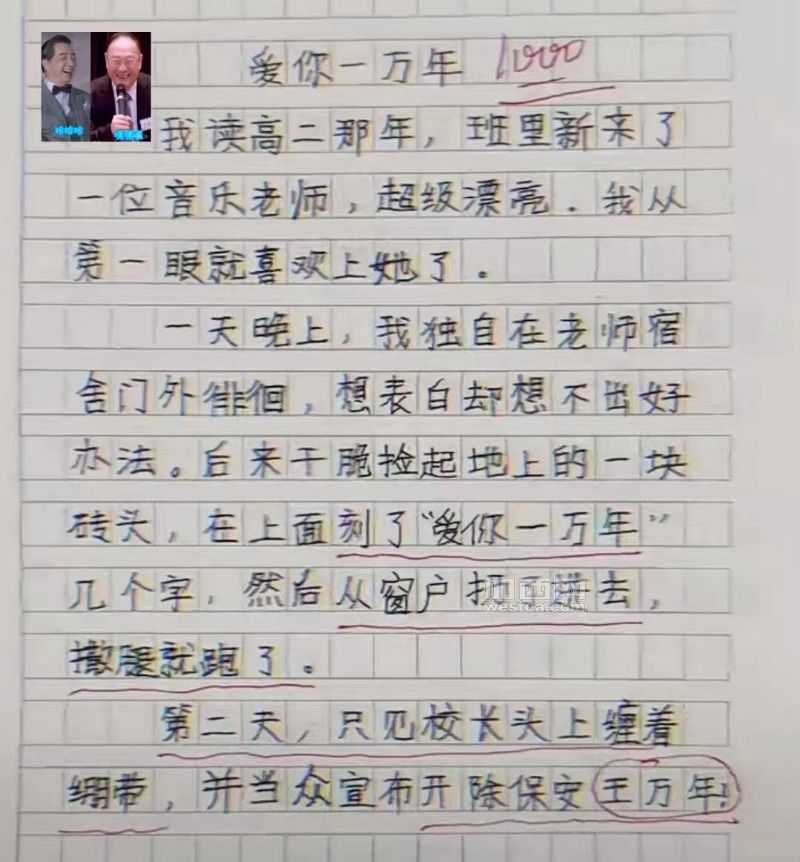 爱你一万年 1000
哈哈哈
我读高二那年，班里新来了
一位音乐老师，超级漂亮．我从
第一眼就喜欢上她了．
一天晚上，我独自在老师宿
舍门外徘徊，想表白却想不出好
办法。后来干脆捡起地上的一块
砖头，在上面刻了“爱你一万年”
几个字，然后从窗户进去，
westca.com
撒腿就跑了。
第二天，只见校长头上缠着
绷带，并当众宣布开除保安王万年！